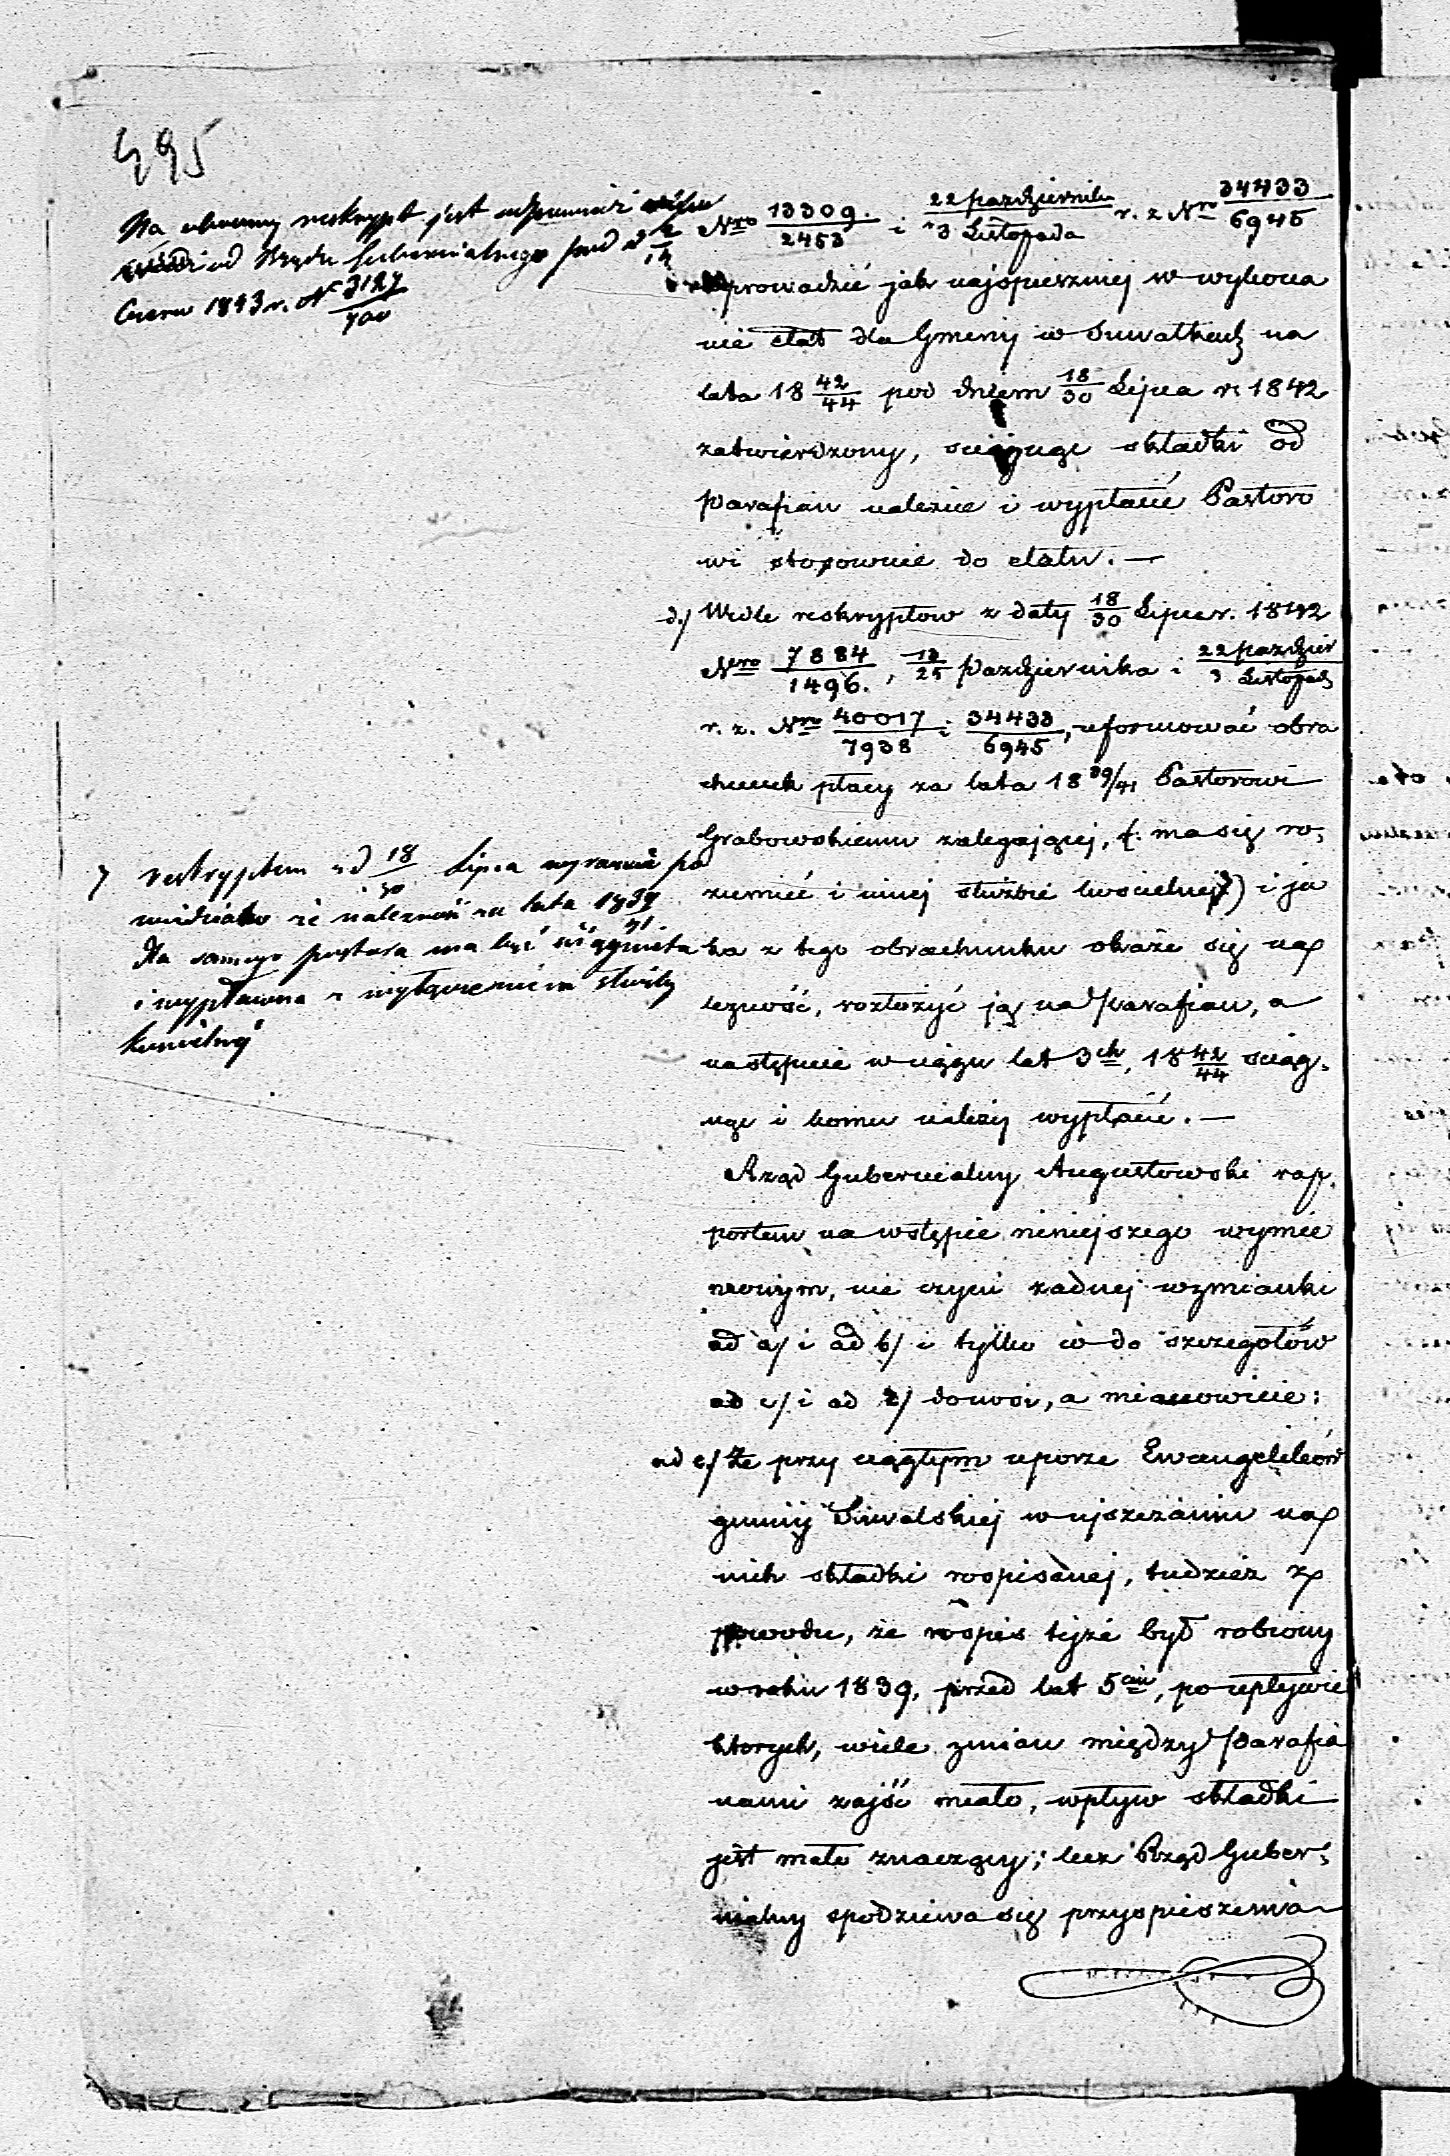 495
Na obecny reskrypt jest odpowiedź
od Rządu Gubernialnego pod d 2/14
Czerw 1843 r. N 3127/700
Nro 13309./2453 i 22 Października/3 Listopada r. z Nro 34433/6945
prowadzić jak najspieszniej w wykona
nie etat dla Gminy w Suwałkach na
lata 18 42/44 pod dniem 18/30 Lipca r. 1842
zatwierdzony, ściągnąć składki od
Parafian należne i wypłacić Pastoro
wi stosownie do etatu. —
d./ Wedle reskryptow z daty 18/30 Lipca r. 1842
Nro 7884/1496., 13/25 Października i 22 Paździer/3 Listopad
r. z. Nro 40017/7938 i 34433/6945, uformować obra
chunek płacy za lata 18 39/41 Pastorowi
Grabowskiemu zalegającej, (: ma się ro,
zumieć i innej służbie koscielnej) i ja
ka z tego obrachunku okaże się na
leżność, rozłożyć ją na Parafian, a
następnie w ciągu lat 3ch, 18 42/44 ściąg,
nąć i komu należy wypłacić. —
7 reskryptem od 18/30 Lipca wyraźnie po
wiedziano że należność za lata 1839/41
dla samego pastora ma być ściągnięta
i wypłacona z wyłączeniem służby
kościelnej
Rząd Gubernialny Augustowski rap,
portem na wstępie niniejszego wymie
nionym, nie czyni żadnej wzmianki
ad a/ i ad b/ i tylko co do szczegółów
ad c/ i ad d/ donosi, a mianowicie:
ad c./ Że przy ciągłym uporze Ewangelików
gminy Suwalskiej w uiszczaniu na
nich składki rospisanej, tudzież z
powodu, że rospis tejże był robiony
w roku 1839, przed lat 5ciu, po upływie
ktorych, wiele zmian między Parafia
nami zajść miało, wpływ składki
jest mało znaczący; lecz Rząd Guber,
nialny spodziewa się przyspieszenia